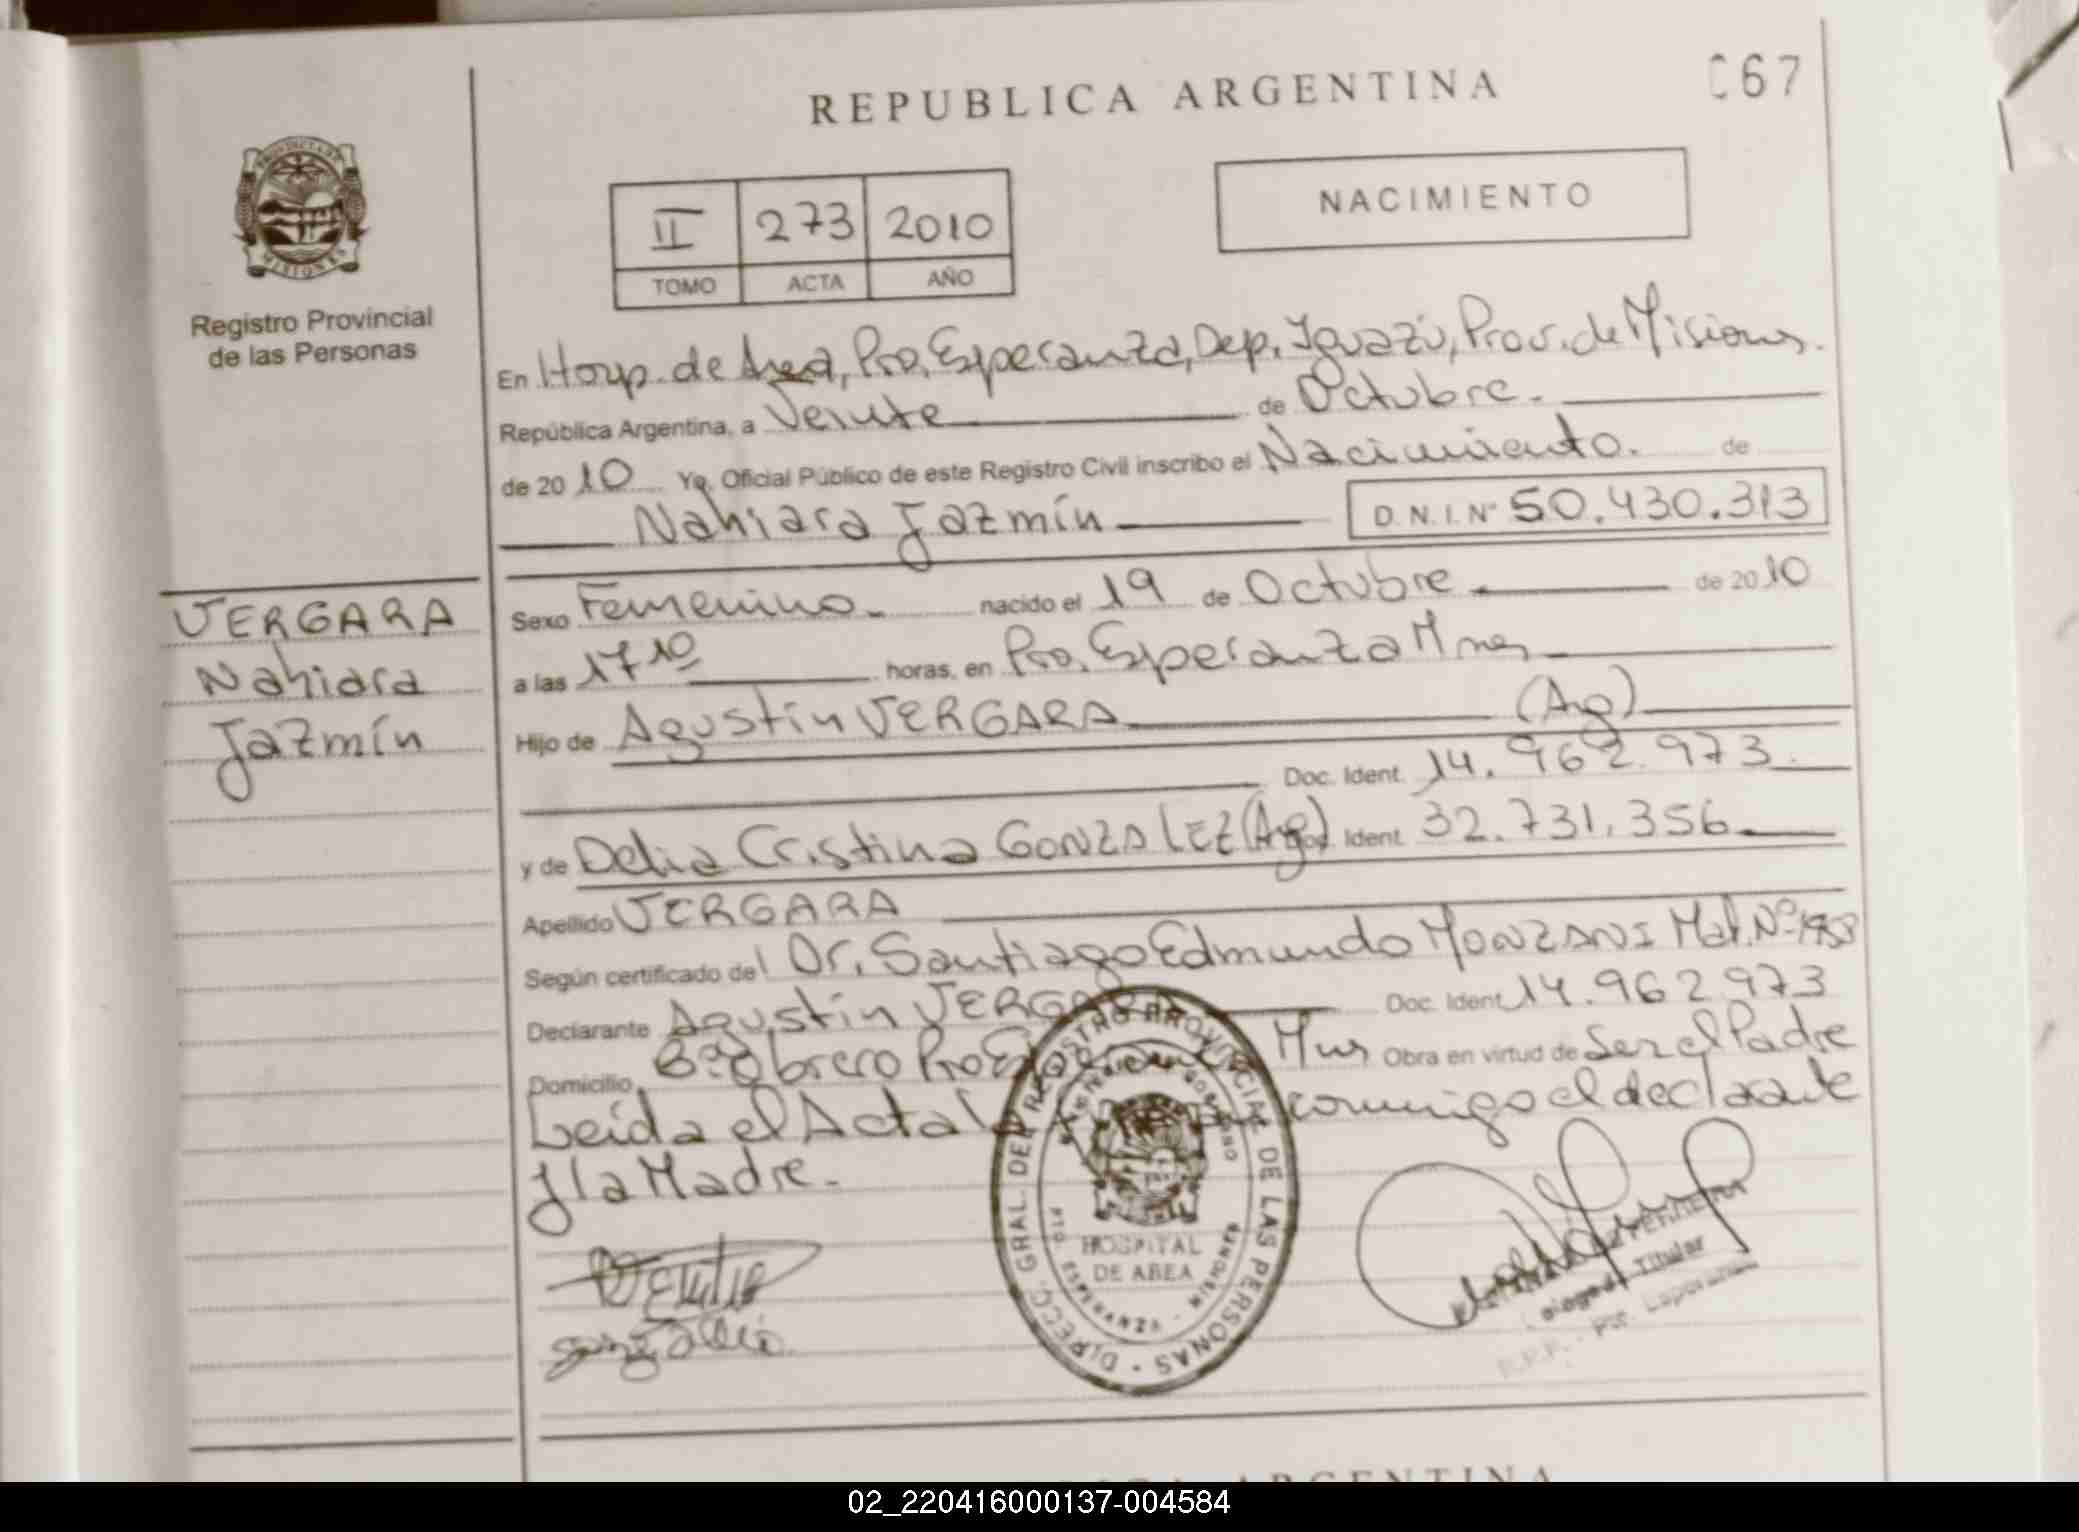 REPUBLICA ARGENTINA
067
PROVINCIA DE
MISIONES
Registro Provincial
de las Personas
II 273 2010
TOMO ACTA AÑO
NACIMIENTO
En Hosp. de Area, Pto. Esperanza, Dep. Iguazú, Prov. de Misiones.
República Argentina, a Veinte de Octubre.
de 2010 Yo, Oficial Público de este Registro Civil inscribo el Nacimiento. de
Nahiara Jazmín D.N.I.Nº 50.430.313
VERGARA
Nahiara
Jazmín
Sexo Femenino. nacido el 19 de Octubre de 2010
a las 17 10 horas, en Pto. Esperanza Mnes
Hijo de Agustín VERGARA (Arg)
Doc. Ident. 14.962.973.
y de Delia Cristina GONZALEZ (Arg) Doc. Ident. 32.731.356
Apellido VERGARA
Según certificado del Dr. Santiago Edmundo MONZANI Mat. Nº 1953
Declarante Agustín VERGARA Doc. Ident. 14.962973
Domicilio Bº Obrero Pto Esperanza Mnes Obra en virtud de Ser el Padre
Leída el Acta la conmigo el declarante
y la Madre.
DIRECC. GRAL. DEL REGISTRO PROVINCIAL DE LAS PERSONAS
HOSPITAL
DE AREA
PTO. ESPERANZA - MISIONES
Titular
02_220416000137-004584